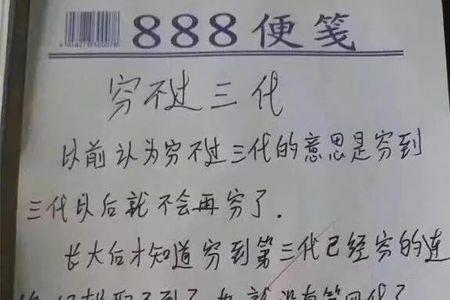 888便笺
穷不过三代
以前认为穷不过三代的意思是穷到
三代以后就不会再穷了.
长大后才知道穷到第三代已经穷的连
不到了,也就没有第四代了